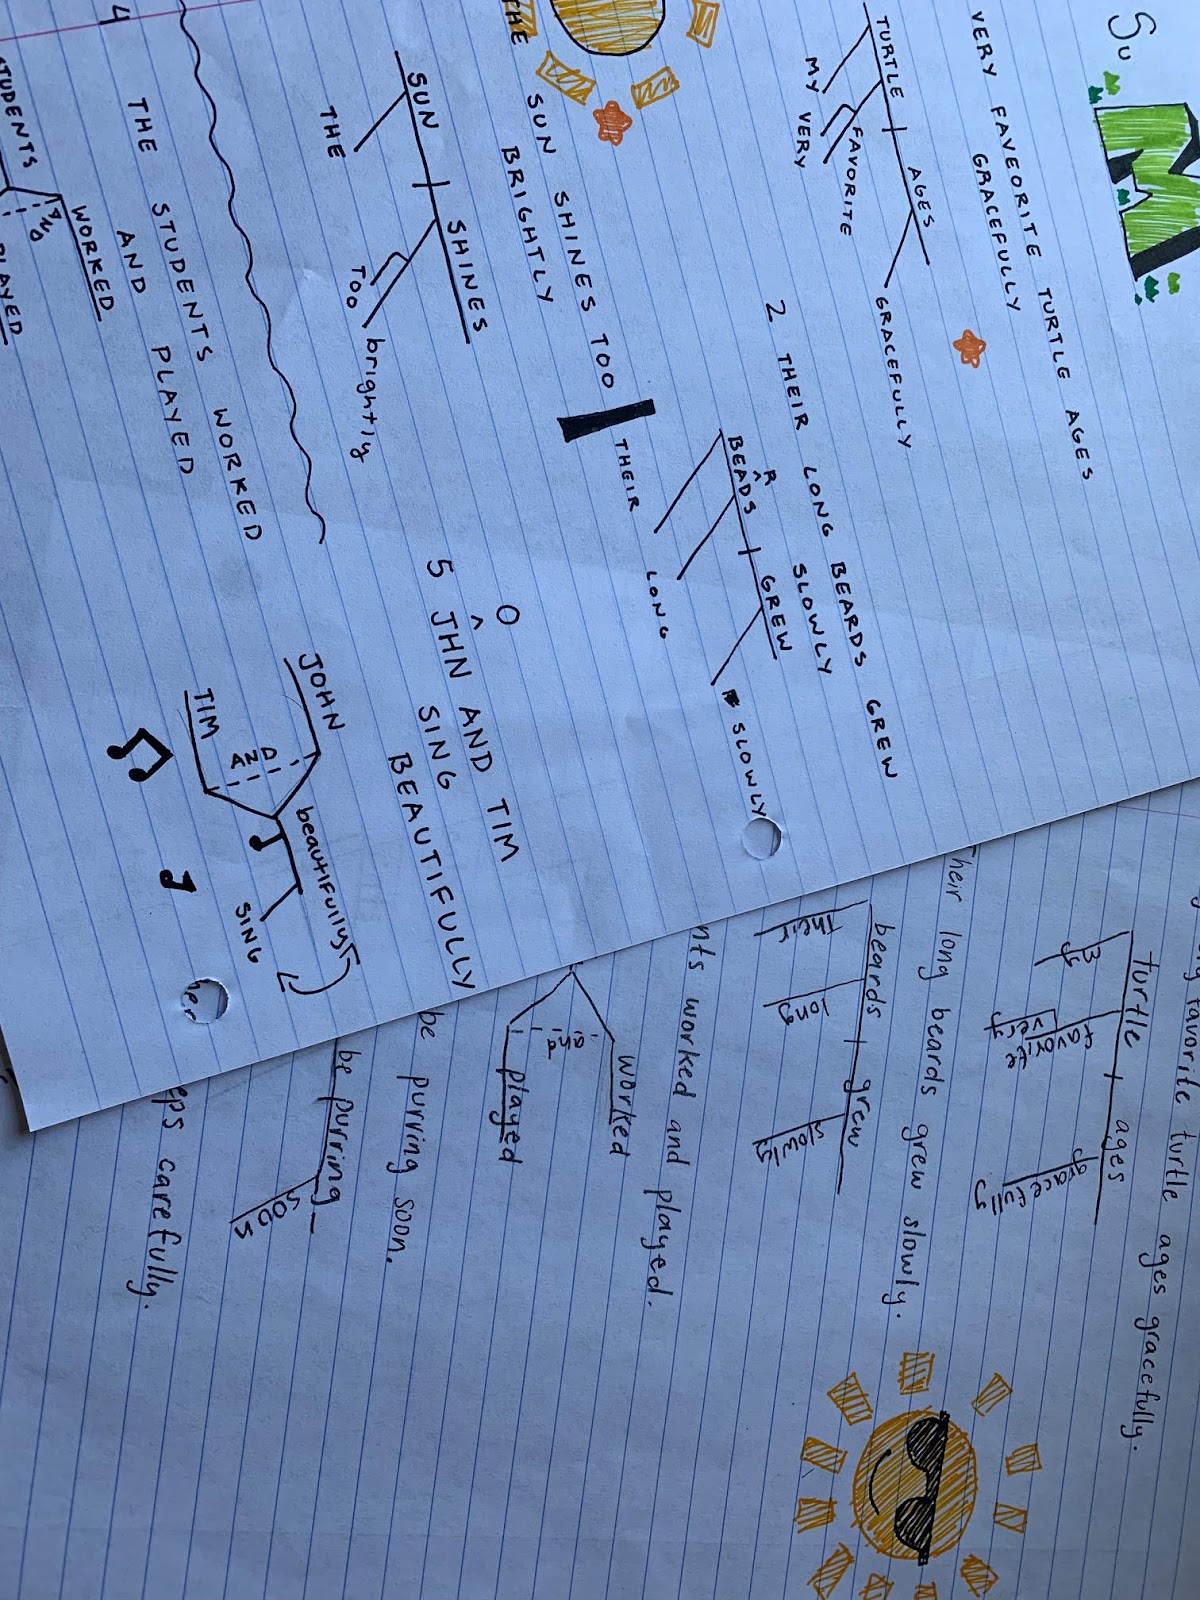 Su
M
VERY FAVEORITE TURTLE AGES
GRACEFULLY
TURTLE AGES
MY VERY FAVORITE GRACEFULLY
2 THEIR LONG BEARDS GREW
SLOWLY
R
BEADS GREW
THEIR LONG SLOWLY
THE SUN SHINES TOO
BRIGHTLY
SUN SHINES
THE TOO brightly
O
5 JHN AND TIM
SING
BEAUTIFULLY
JOHN
AND beautifully
TIM SING
4 THE STUDENTS WORKED
AND PLAYED
STUDENTS WORKED
AND
PLAYED
favorite turtle ages gracefully.
turtle ages
By very favorite gracefully
Their long beards grew slowly.
beards grew
Their long slowly
nts worked and played.
worked
and
played
be purring soon.
be purring
soon
eps carefully.
her